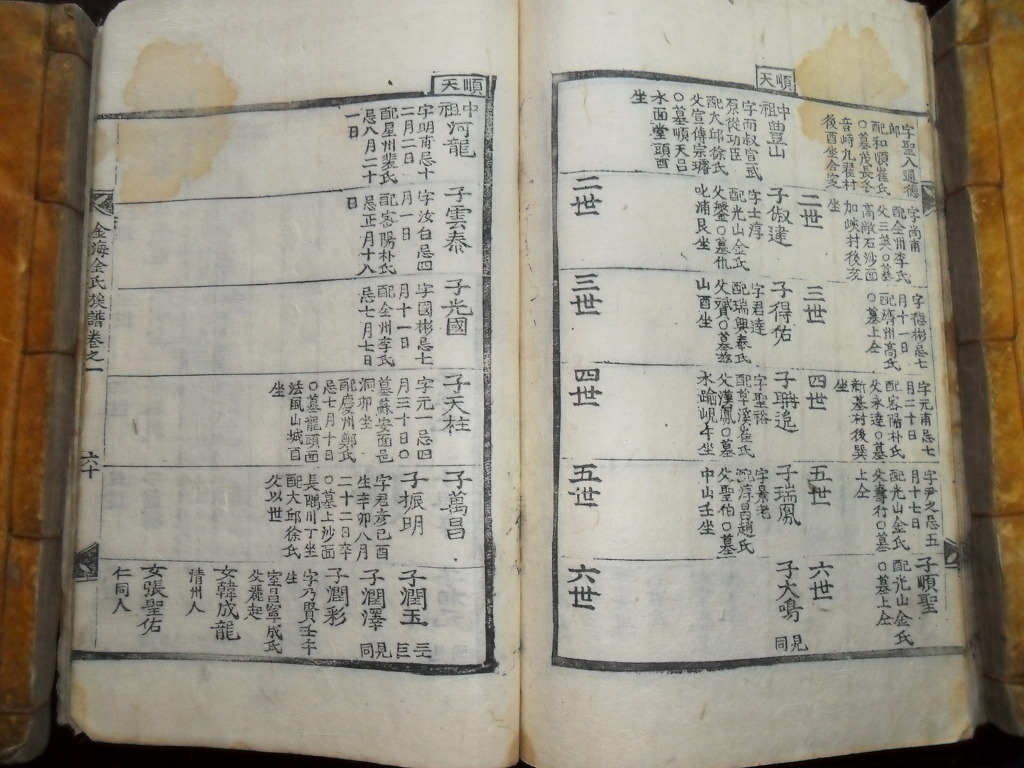 順天
字聖人通德
郎
配和順崔氏
音峙九翟村
後酉坐合窆
中祖豊山
字而叔宣武
原從功臣
配大邱徐氏
父宣傳宗璿
○墓順天吕
水面堂頭酉
坐
字尚甫
配全州李氏
父三英○墓
高敞石沙面
加峽村後亥
坐
二世
子俶建
字士淳
配光山金氏
叱浦艮坐
二世
月十一日
配濟州高氏
○墓上仝
三世
子得佑
字君達
配瑞興奉氏
山酉坐
三世
字元甫忌七
月二十日
配密陽朴氏
父永達○墓
新基村後巽
坐
四世
字聖裕
配草溪崔氏
父漢鳳○墓
水踰峴午坐
四世
字尹之忌五
月十七日
配光山金氏
父壽行○墓
上仝
五世
子瑞鳳
字景老
配淳昌趙氏
父聖伯○墓
中山壬坐
五世
子順聖
配光山金氏
○墓上仝
六世
子大鳴
見同
六世
順天
中祖河龍
字明甫忌十
二月二日
配星州裴氏
忌八月二十
一日
子雲泰
字汝白忌四
月一日
配密陽朴氏
忌正月十八
日
子光國
字國彬忌七
月十一日
配金州李氏
忌七月七日
子天柱
字元一忌四
月三十日○
墓蘇安面邑
洞卯坐
配慶州鄭氏
忌七月十日
○墓龍頭面
法風山城酉
坐
子萬昌
子振明
字君彦己酉
生辛卯八月
二十二日卒
○墓上沙面
長隅川丁坐
配大邱徐氏
父以世
子潤玉
子潤澤
見同
子潤彩
字乃賢壬午
生
室昌寧成氏
女韓成龍
清州人
女張聖佑
仁同人
金海金氏族譜卷之一
六十